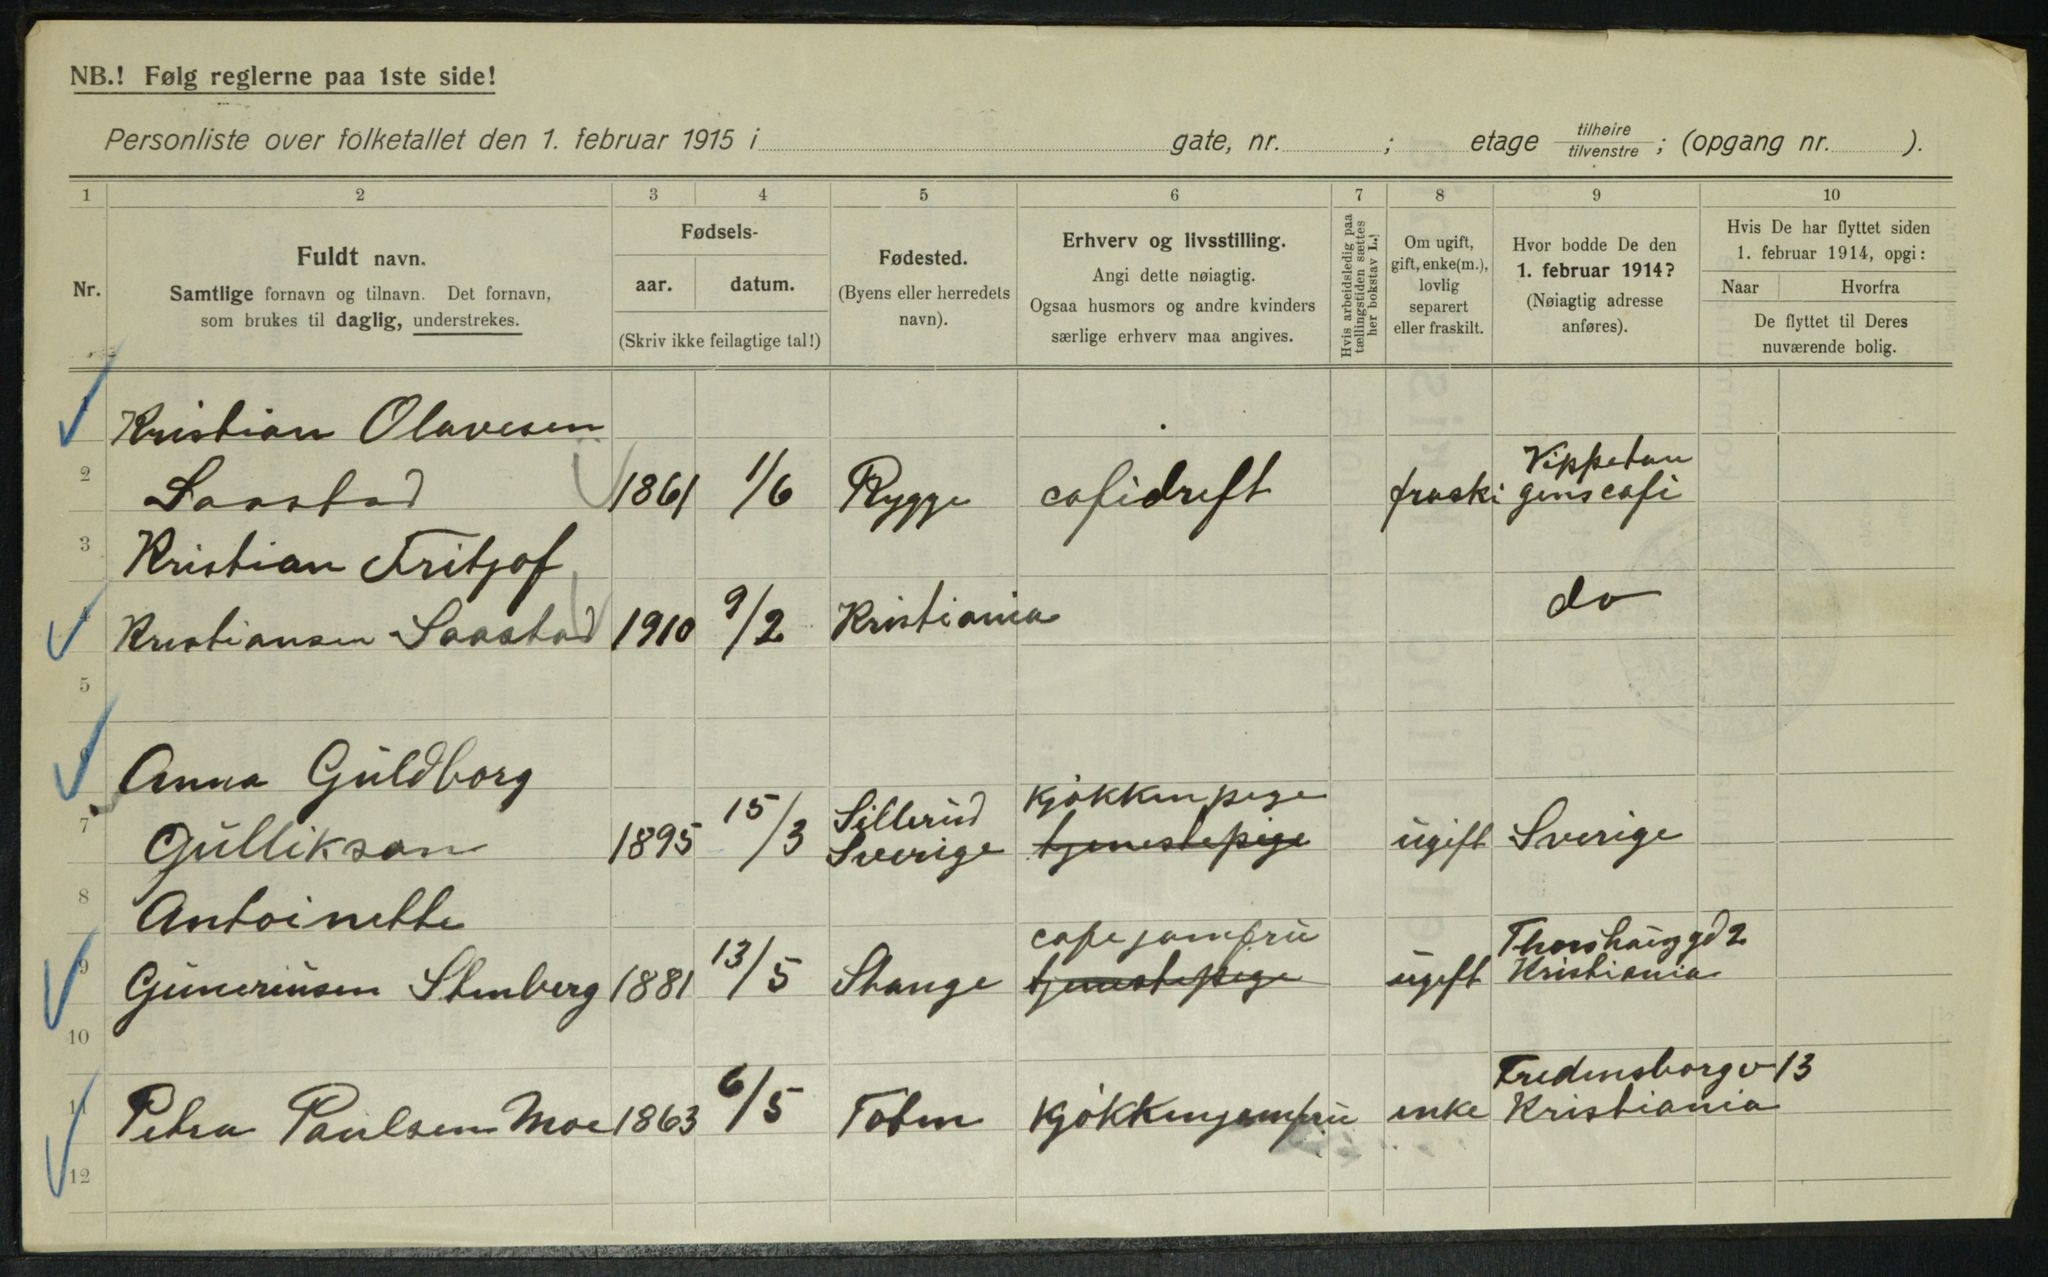 NB.! Følg reglerne paa 1ste side!
Personliste over folketallet den 1. februar 1915 i gate, nr. ; etage tilhøire/tilvenstre ; (opgang nr. ).
1 2 3 4 5 6 7 8 9 10
Nr.
Fuldt navn.
Samtlige fornavn og tilnavn. Det fornavn,
som brukes til daglig, understrekes.
Fødsels-
aar. datum.
(Skriv ikke feilagtige tal!)
Fødested.
(Byens eller herredets
navn).
Erhverv og livsstilling.
Angi dette nøiagtig.
Ogsaa husmors og andre kvinders
særlige erhverv maa angives.
Hvis arbeidsledig paa
tællingstiden sættes
her bokstav L.!
Om ugift,
gift, enke(m.),
lovlig
separert
eller fraskilt.
Hvor bodde De den
1. februar 1914?
(Nøiagtig adresse
anføres).
Hvis De har flyttet siden
1. februar 1914, opgi:
Naar Hvorfra
De flyttet til Deres
nuværende bolig.
Kristian Olavesen Vippetan
2 Saastad 1861 1/6 Rygge cafidreft fraski gens cafi
3 Kristian Fritjof
Kristiansen Saastad 1910 9/2 Kristiania do
5
6 Anna Guldborg Sillerud kjøkkenpege
7 Gullikson 1895 15/3 Sverige tjenestepige ugift Sverige
8 Antoinette cafe jomfru Thorshauggd 2
9 Guneriusen Stenberg 1881 13/5 Stange tjenestepige ugift Kristiania
10 Fredensborgv 13
11 Petra Paulsen Moe 1863 6/5 Toten Kjøkkenjomfru enke Kristiania
12